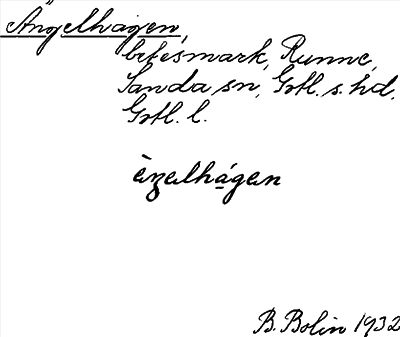 Ängelhagen,
betesmark, Runne,
Sanda sn, Gotl. s. hd.
Gotl. l.
B. Bolin 1932